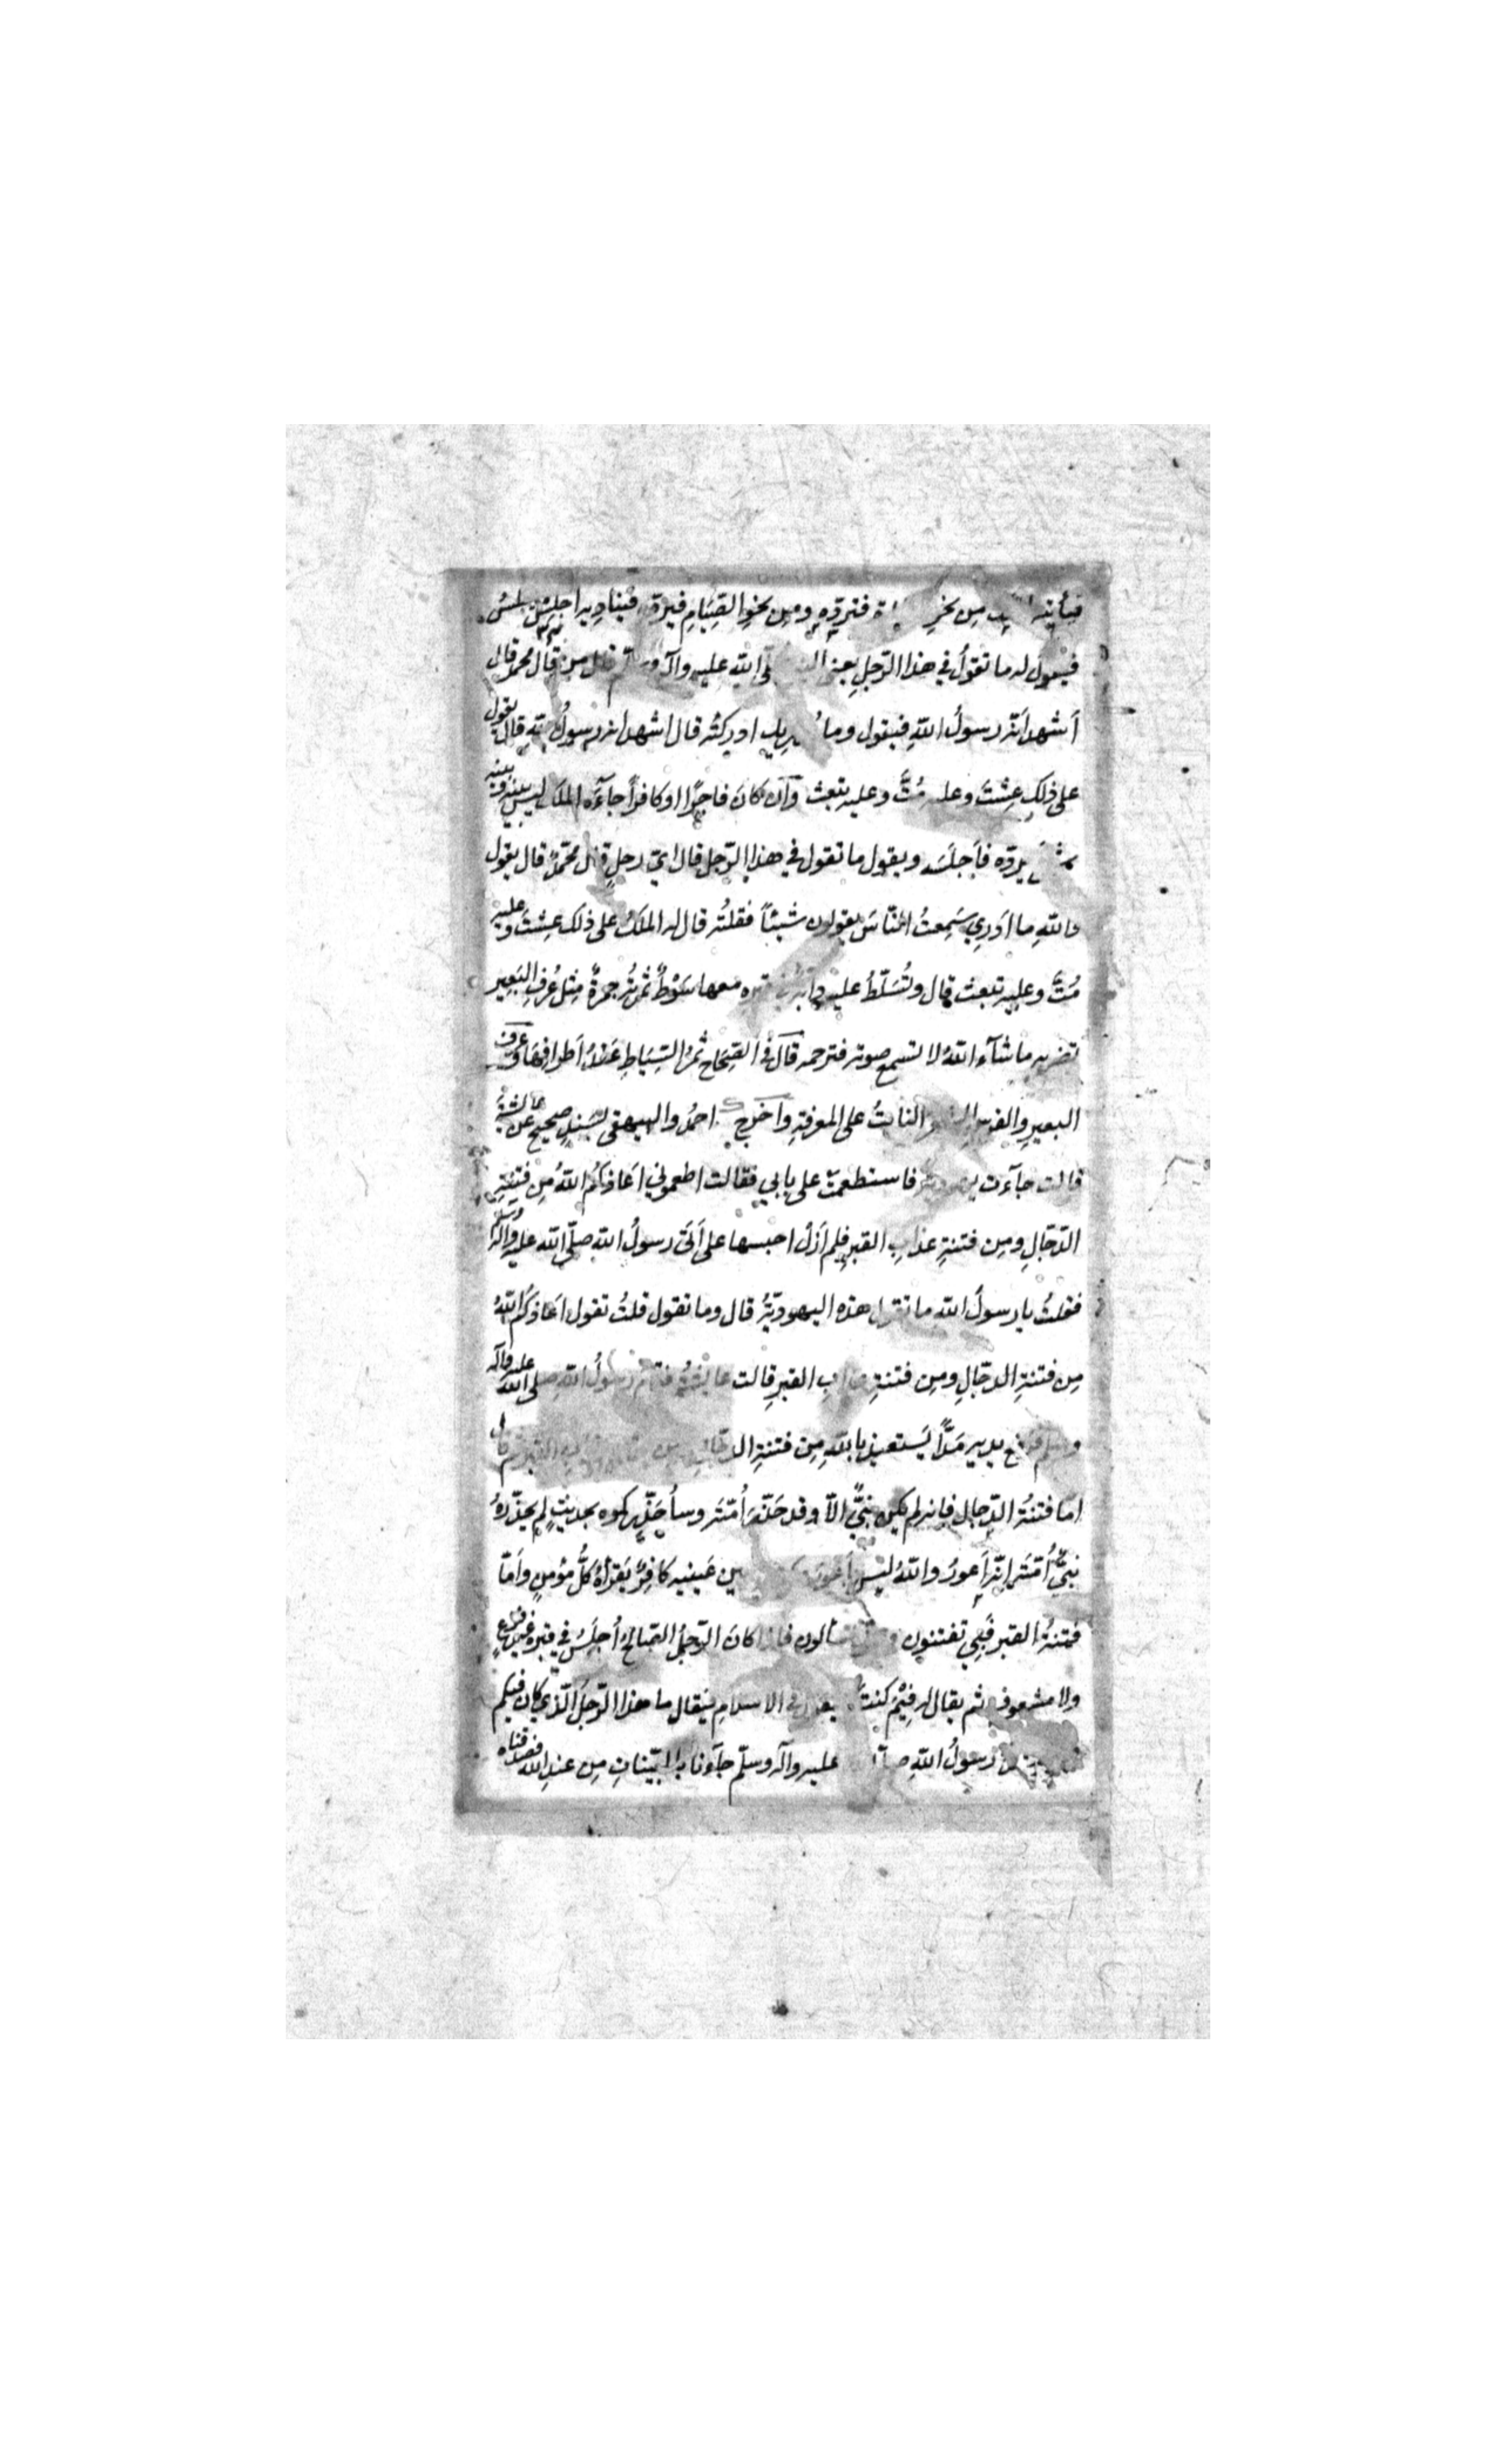 من نحو فتردّه ومِن نحوِ الصِّيَامِ فيردّه فيناديه اجلِس فيجلسُ
فيقول له ما تقولُ في هذا الرّجلِ يعني صلّى الله عليه وآله وسلّم قال من قال محمد قال
أشهد أنّه رسولُ اللّهِ فيقول وما يدريك ادركتُه قال اشهد انه رسولُ اللّهِ قال يقول
على ذلِكِ عِشْتَ وعليه مُتَّ وعليه تبعث وَاِن كانَ فاجِرًا او كافرًا جاۤءَه الملك ليس بينه وبينه
شئ يردّه فاَجلَسَه ويقول ما تقول في هذا الرّجل قال ايّ رجلٍ قال محمّدٌ قال يقول
واللّهِ ما ادَرِي سَمِعتُ النّاسَ يقولون شيئًا فقلتُه قال له الملَكُ على ذلك عِشتَ وعليه
مُتَّ وعليه تبعث قال وتُسَلّطُ عليه دابّةٌ في قبره معها سَوْطٌ ثمرتُه جمرةٌ مِثل عُرفِ البَعِير
تضربه ما شاۤءَ اللّهُ لا تسمع صوته فترحمه قال في الصِّحَاح ثمرُ السِّيَاطِ عُقَدُ اَطرافِها وعرف
البعيرِ والفرسِ الشعر النابتُ على المعرفةِ وأخرج احمدُ والبيهقي بسَندٍ صحيحٍ عن عائشةَ
قالت جاۤءت يهودية فاستطعمت على بابي فقالت اطعموني اَعاذكمُ اللّهُ مِن فتنةِ
الدّجّالِ ومِن فتنةِ عذابِ القبرِ فلم اَزل احبسها حتى اَتَى رسولُ اللّه صلّى اللّه عليه وآله وسلّم
فقلتُ يا رسولَ اللّه ما تقول هذه اليهوديّةُ قال وما تقول قلتُ تقول اَعاذكُم اللّهُ
مِن فتنةِ الدجّالِ ومِن فتنةِ عذابِ القبرِ قالت عايشةُ فقام رسولُ اللّهِ صلى اللّه عليه وآله
وسلم فرفع يديه مَدًّا يَستعيذ باللّهِ مِن فتنةِ الدجّالِ ومن فتنة عذابِ القبر ثم قال
امّا فتنةُ الدّجال فانه لم يكن نبيٌّ الّا وقد حَذّرَ اُمّتَه وسأُحَذِّركموه بحديثٍ لم يحذّرهُ
نبيٌّ اُمّتَه اِنّه اَعورُ واللّهُ ليسَ بأعورَ مكتوب بين عَينيه كافِرٌ يَقرَاُهُ كلُّ مؤمنٍ واَمّا
فتنةُ القبر فَبِي تفتنون وعني تسألون فاِذا كانَ الرّجلُ الصّالِحُ اُجلِسَ في قبره غيرَ فزعٍ
ولا مشعوف ثم يقال له فِيْمَ كنتَ فيقول في الاسلامِ فيقال ما هذا الرّجلُ الّذي كان فيكم
رسولُ اللّهِ صلّى عليه وآله وسلّم جاۤءَنا بالبيّناتِ مِن عندِ اللّه فصدقناه